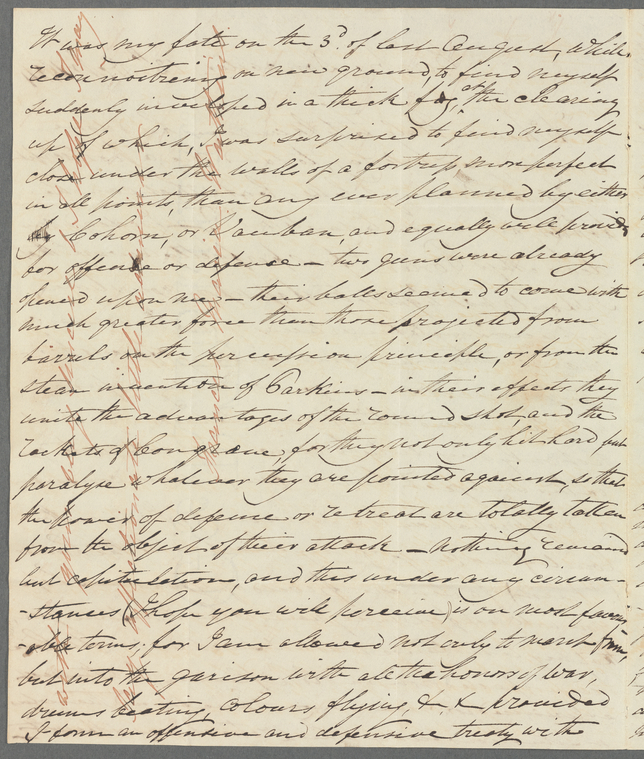 It was my fate on the 3d of last August, while
reconnoitring on new ground, to find myself
suddenly inveloped in a thick fog, on the clearing
up of which, I was surprised to find myself
close under the walls of a fortress more perfect
in all points, than any ever planned by either
Cohorn, or Vauban, and equally well provided
for offence or defense — two guns were already
opened upon me — their balls seemed to come with
much greater force than those projected from
barrels on the percussion principle, or from the
steam invention of Parkins — in their effects they
unite the advantages of the round shot, and the
rockets of Congrave, for they not only hit hard, but
paralyse whatever they are pointed against, so that
the power of defence or retreat are totally taken
from the object of their attack — nothing remains
but capitulation, and this under any circum-
-stances (I hope you will perceive) is on most favor-
-able terms, for I am allowed not only to march from,
but into the garison with all the honors of war,
drums beating, colours flying &c &c provided
I form an offensive and defensive treaty with the